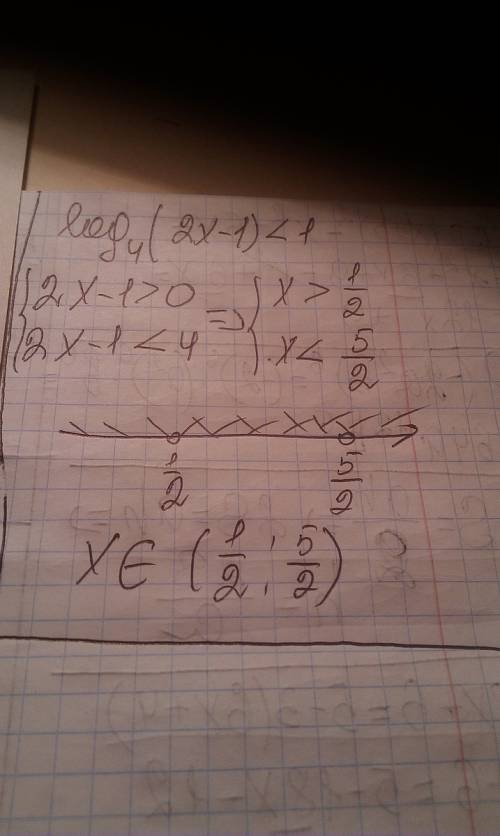 log₄(2x-1)<1
{2x-1>0 => {x>1/2
{2x-1<4 {x<5/2
1/2 5/2
x∈(1/2; 5/2)